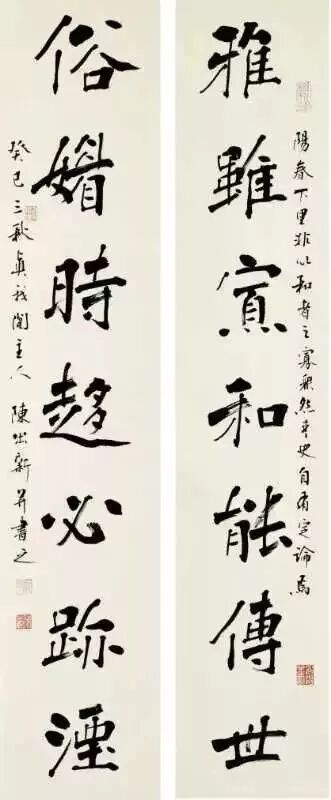 陽春下里非以和者之寡然史自有定論焉
雅雖寡和能傳世
俗媚時趍必跡湮
癸巳三秋眞我閣主人陳出新并書之